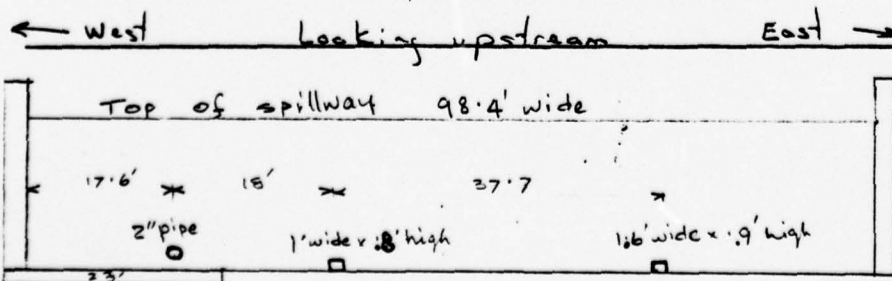 West Looking upstream East
Top of spillway 98.4' wide
17.6' 18' 37.7
2" pipe 1' wide x .8' high 1.6' wide x .9' high
23'